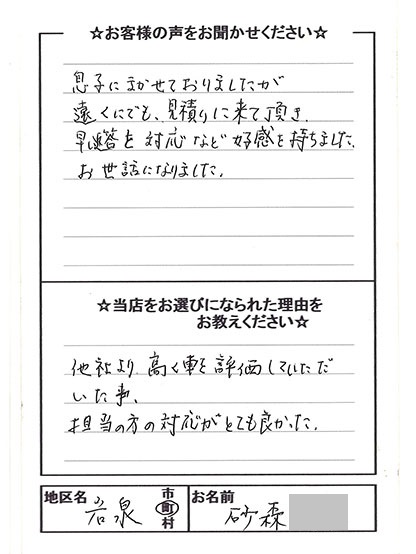 ☆お客様の声をお聞かせください☆
息子にまかせておりましたが
遠くにでも、見積りに来て頂き、
早い返答を対応など好感を持ちました。
お世話になりました。
☆当店をお選びになられた理由を
お教えください☆
他社より高く車を評価していただ
いた事、
担当の方の対応がとても良かった。
地区名 岩泉 市町村 お名前 砂森